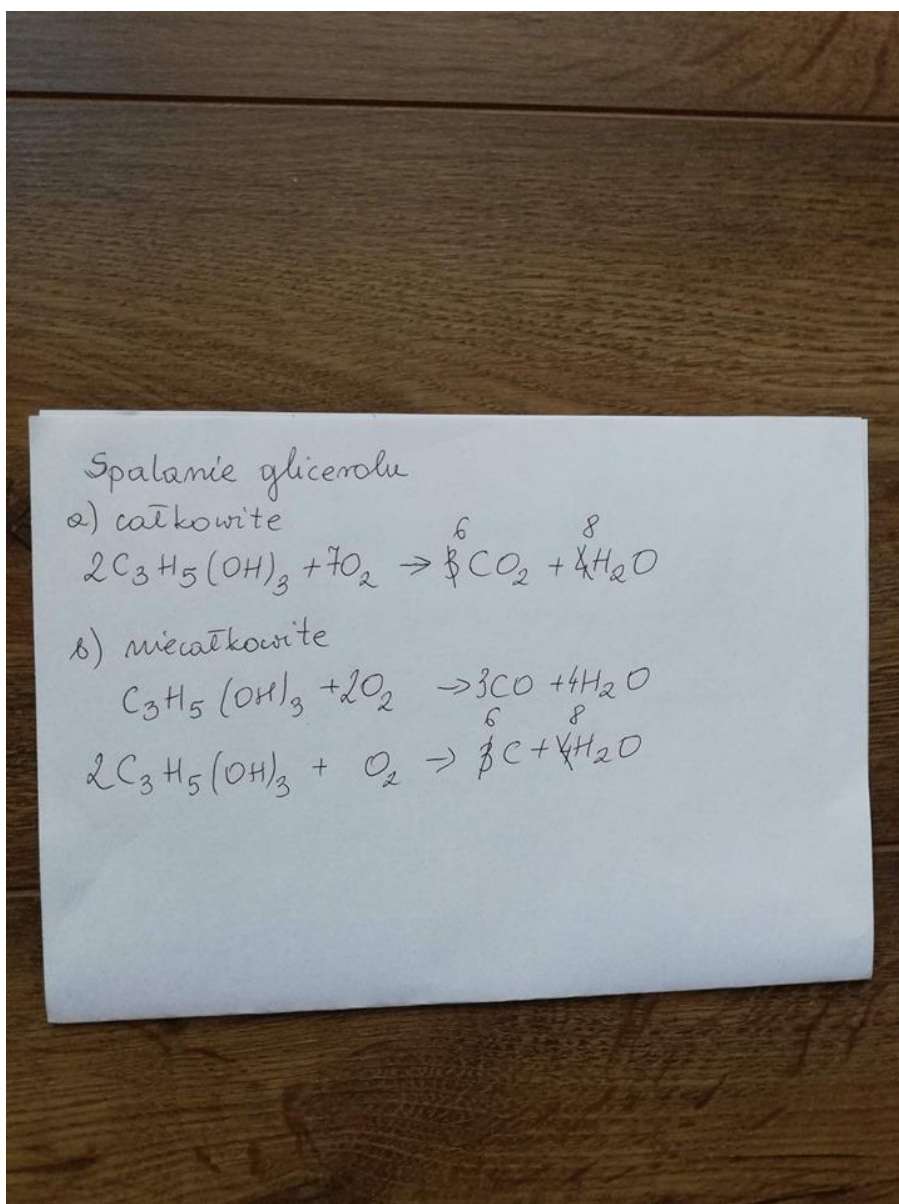 Spalanie glicerolu
a) całkowite
6 8
2C₃H₅(OH)₃ + 7O₂ → 3CO₂ + 4H₂O
b) niecałkowite
C₃H₅(OH)₃ + 2O₂ → 3CO + 4H₂O
6 8
2C₃H₅(OH)₃ + O₂ → 3C + 4H₂O